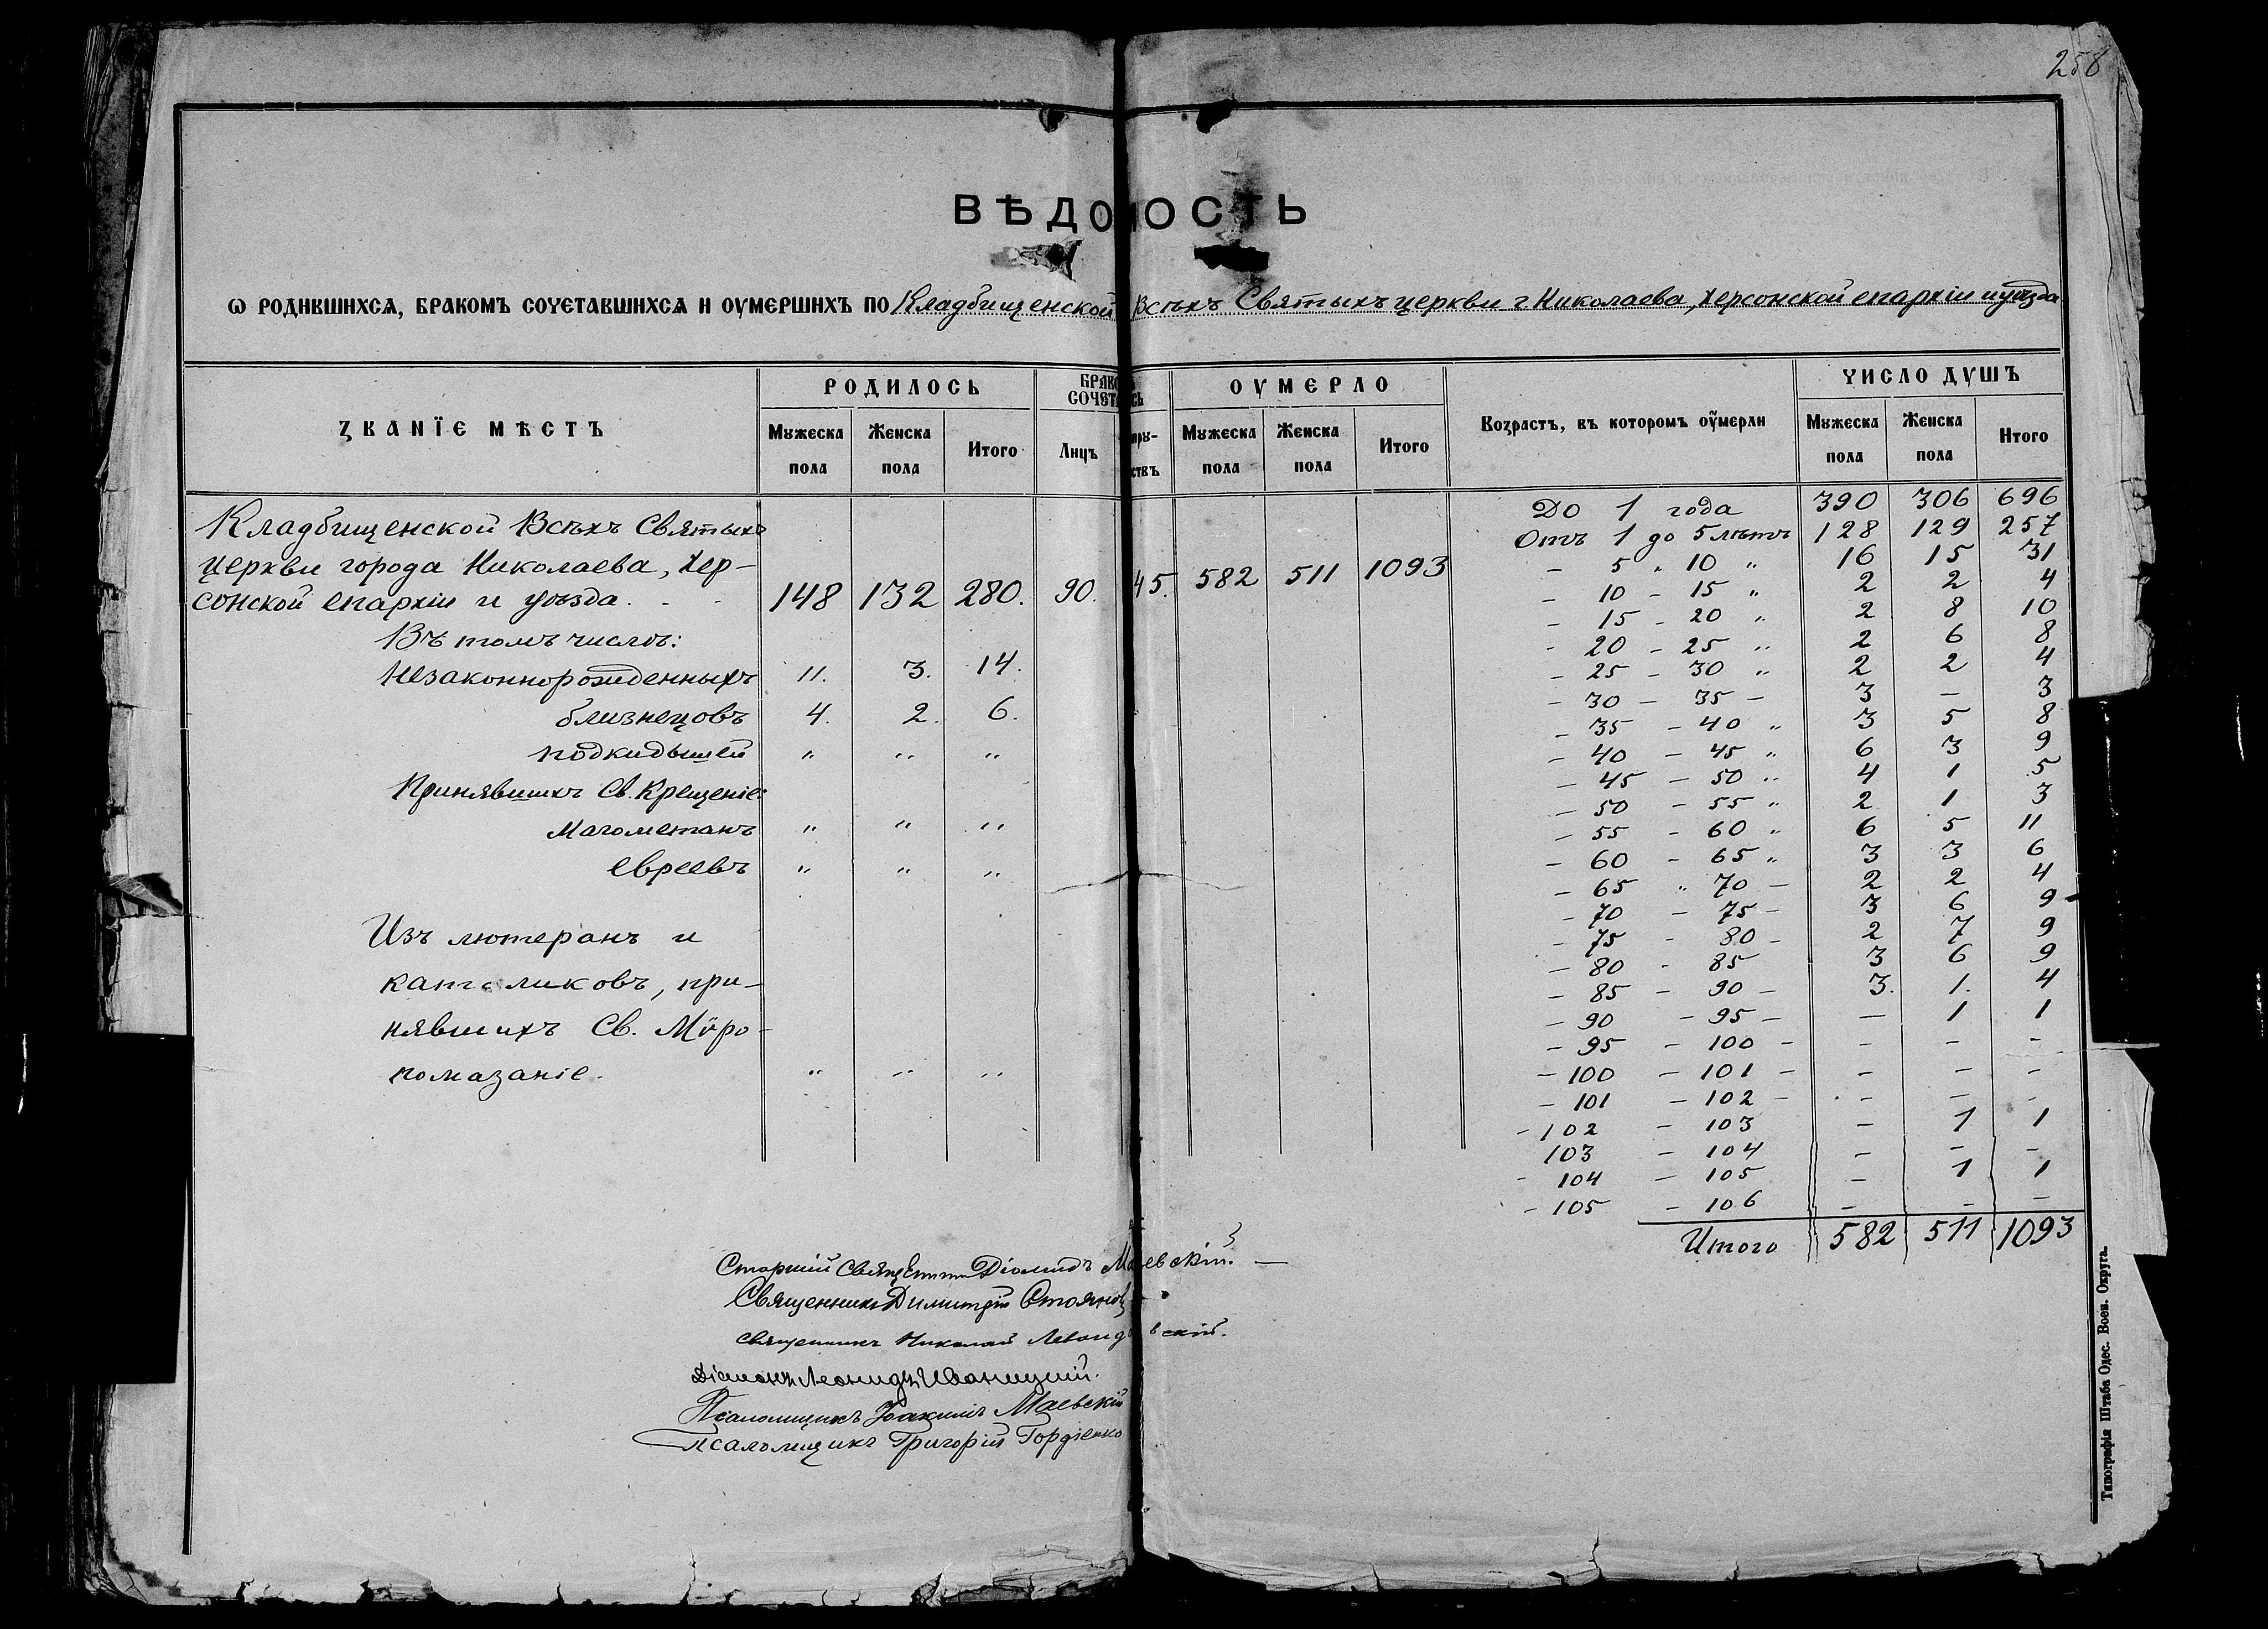 258
ВѢДОМОСТЬ
Ѡ РОДИВШИХСѦ, БРАКОМЪ СОЧЕТАВШИХСѦ И ОУМЕРШИХЪ ПО Кладбищенской Всѣхъ Святыхъ церкви г. Николаева, Херсонской епархіи и уѣзда
ЗВАНЇЕ МѢСТЪ
РОДИЛОСЬ
БРАКО
СОЧЕТ СЬ
ОУМЕРЛО
Возрастъ, въ которомъ оумерли
ЧИСЛО ДУШЪ
Мужеска пола Женска пола Итого Лицъ пру- ствъ Мужеска пола Женска пола Итого Мужеска пола Женска пола Итого
Кладбищенской Всѣхъ Святыхъ
церкви города Николаева, Хер-
сонской епархіи и уѣзда. 148 132 280. 90. 45. 582 511 1093
Въ томъ числѣ:
Незаконнорожденныхъ 11. 3. 14.
близнецовъ 4. 2. 6.
подкидышей " " "
Принявшихъ Св. Крещеніе:
Магометанъ " " "
евреевъ " " "
Изъ лютеранъ и
католиковъ, при-
нявшихъ Св. Мѵро-
помазаніе. " " "
До 1 года 390 306 696
Отъ 1 до 5 лѣтъ 128 129 257
– 5 " 10 " 16 15 31
– 10 – 15 " 2 2 4
– 15 – 20 " 2 8 10
– 20 – 25 " 2 6 8
– 25 – 30 " 2 2 4
– 30 – 35 – 3 – 3
– 35 – 40 " 3 5 8
– 40 – 45 " 6 3 9
– 45 – 50 " 4 1 5
– 50 – 55 " 2 1 3
– 55 – 60 " 6 5 11
– 60 – 65 " 3 3 6
– 65 " 70 – 2 2 4
– 70 – 75 – 3 6 9
– 75 – 80 – 2 7 9
– 80 – 85 3 6 9
– 85 – 90 – 3. 1. 4
– 90 – 95 – – 1 1
– 95 – 100 – – – –
– 100 – 101 – – – –
– 101 – 102 – – – –
– 102 – 103 – 1 1
103 – 104 – – –
– 104 – 105 – 1 1
– 105 – 106 – – –
Итого 582 511 1093
Старшій Священникъ Діомидъ Маевскій. —
Священникъ Димитрій Стоянов
священникъ Николай Левандовскій.
Діаконъ Леонидъ Иваницкій.
Псаломщикъ Іоакимъ Маевскій
Псаломщикъ Григорій Гордіенко
Типографія Штаба Одес. Воен. Округа.